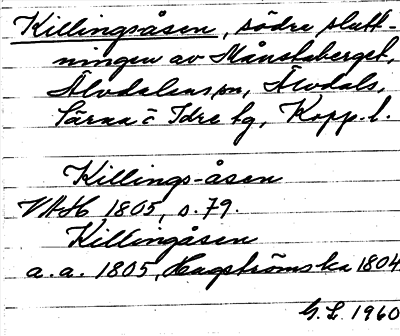 Killingsåsen, södra slutt-
ningen av Månstaberget,
Älvdalens sn, Älvdals,
Särna o Idre tg, Kopp. l.
Killings-åsen
VAH 1805, s. 79.
Killingåsen
a. a. 1805, Hagströms ka 1804
G. L. 1960